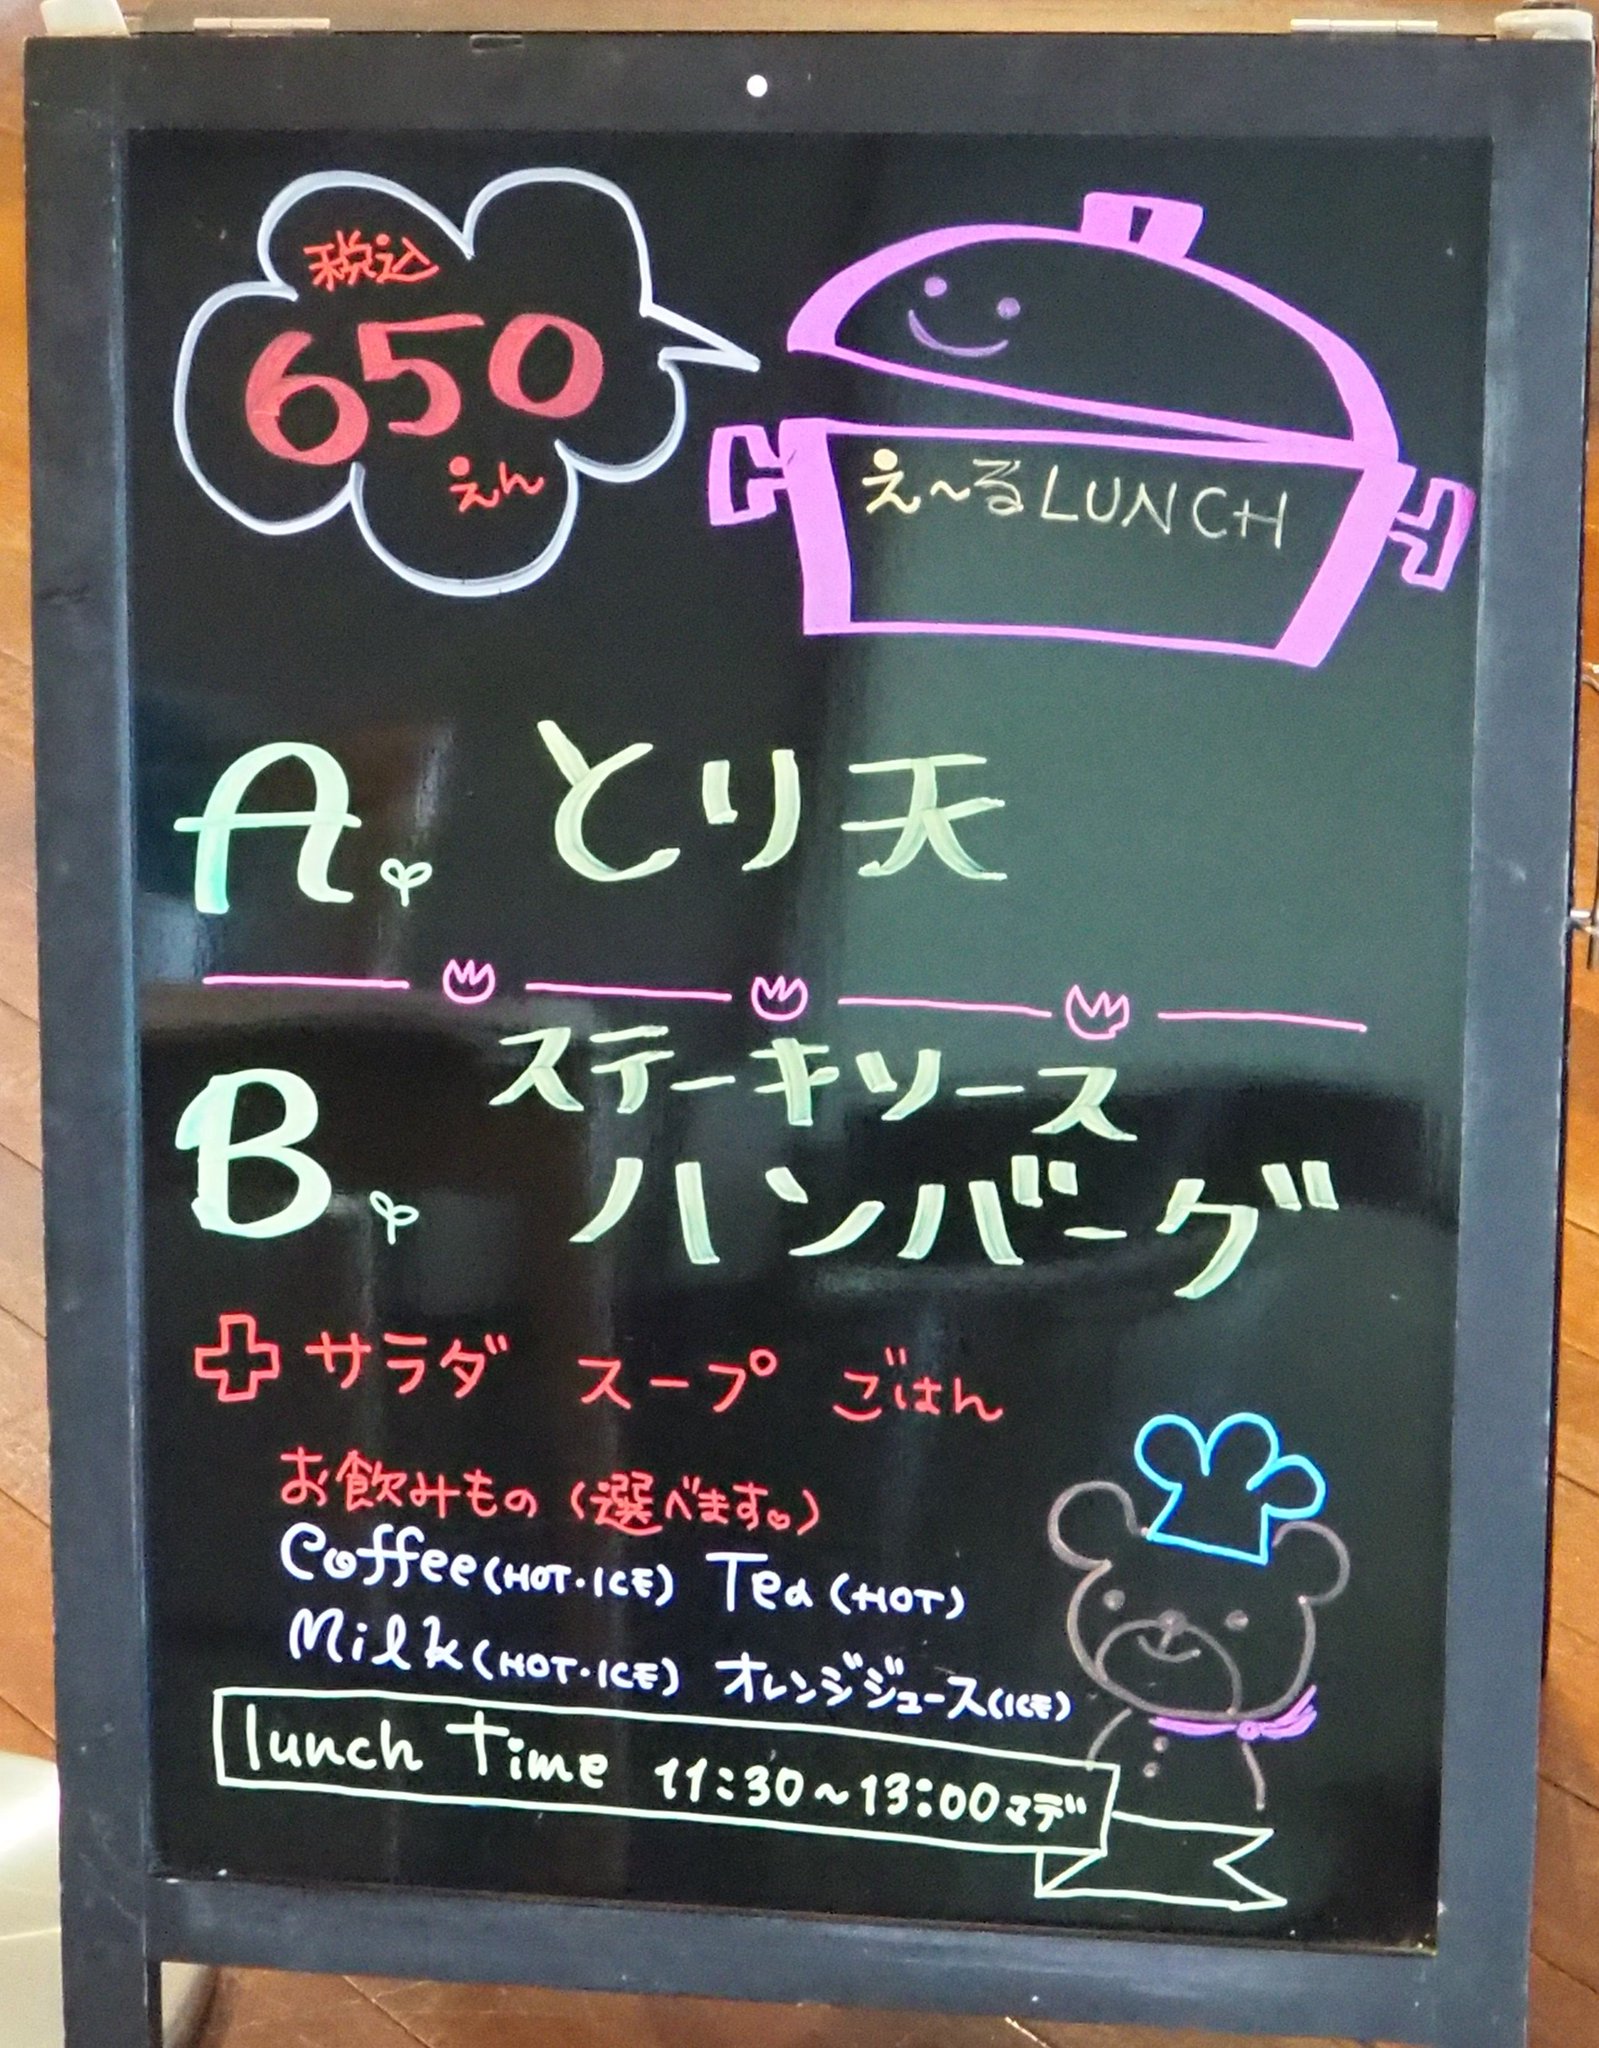 税込
650
えん
え～るLUNCH
A. とり天
B. ステーキソース
ハンバーグ
+ サラダ スープ ごはん
お飲みもの (選べます。)
Coffee (HOT・ICE) Tea (HOT)
Milk (HOT・ICE) オレンジジュース (ICE)
lunch Time 11:30～13:00マデ